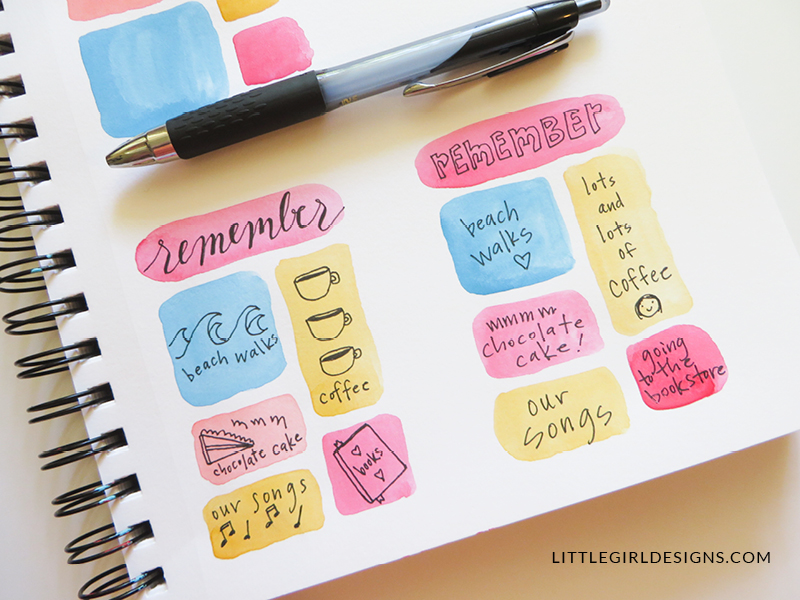 remember
beach walks
coffee
mmm
chocolate cake
books
our songs
REMEMBER
beach
walks
lots
and
lots
of
coffee
mmmm
chocolate
cake!
going
to the
bookstore
our
songs
LITTLEGIRLDESIGNS.COM